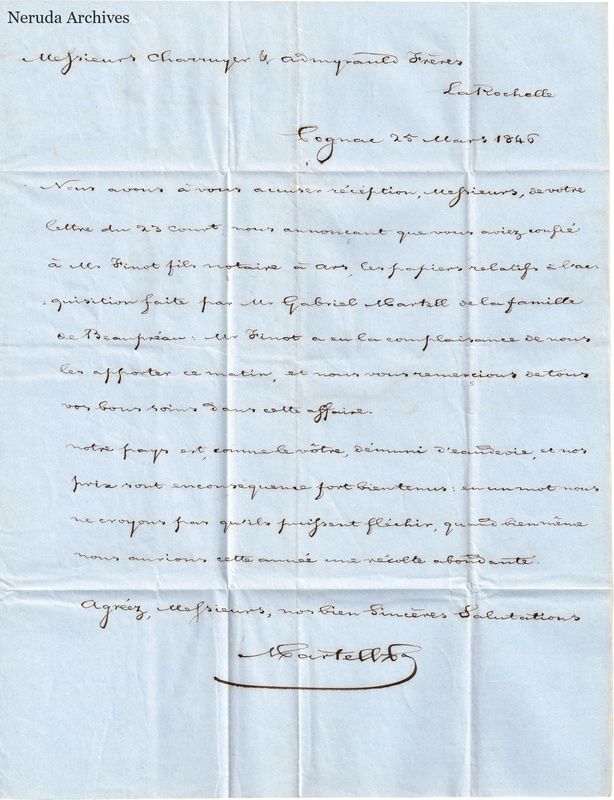 Neruda Archives
Messieurs Charruyer & Admyrauld Frères
La Rochelle
Cognac 25 Mars 1846
Nous avons à vous accuser réception, Messieurs, de votre
lettre du 23 court nous annoncant que vous aviez confié
à Mr Finot fils notaire à Ars, les papiers relatifs à l'ac-
quisition faite par Mr Gabriel Martell de la famille
de Beaupréau : Mr Finot a eu la complaisance de nous
les apporter ce matin, et nous vous remercions de tous
vos bons soins dans cette affaire.
notre pays est, comme le vôtre, démuni d'eaudevie, et nos
prix sont en conséquence fort bien tenus : en un mot nous
ne croyons pas qu'ils puissent fléchir, quand bien même
nous aurions cette année une récolte abondante.
Agréez, Messieurs, nos bien Sincères Salutations
Martell & Co